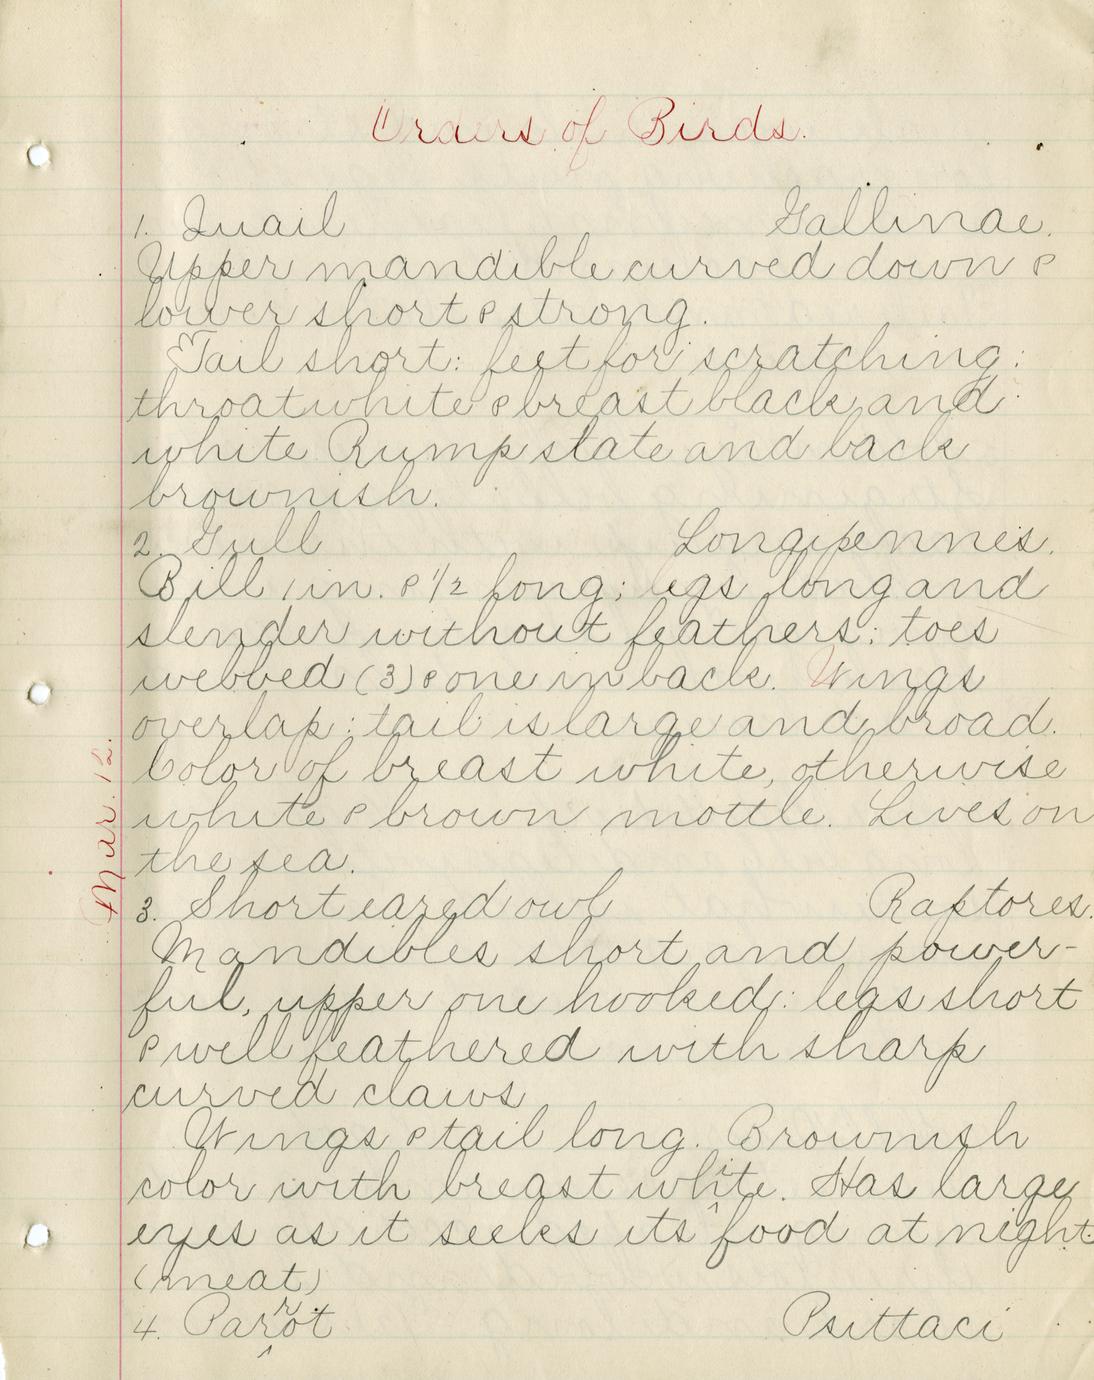 Orders of Birds.
1. Quail Gallinae.
Upper mandible curved down &
lower short & strong.
Tail short: feet for scratching:
throat white & breast black and
white Rump slate and back
brownish.
2. Gull Longipennes.
Bill 1 in. & 1/2 long; legs long and
slender without feathers; toes
webbed (3) & one in back. Wings
overlap: tail is large and broad.
Color of breast white, otherwise
white & brown mottle. Lives on
the sea.
Mar. 12.
3. Short eared owl Raptores.
Mandibles short and power-
ful, upper one hooked: legs short
& well feathered with sharp
curved claws
Wings & tail long. Brownish
color with breast white. Has large
eyes as it seeks its food at night
(meat)
4. Parrot Psittaci